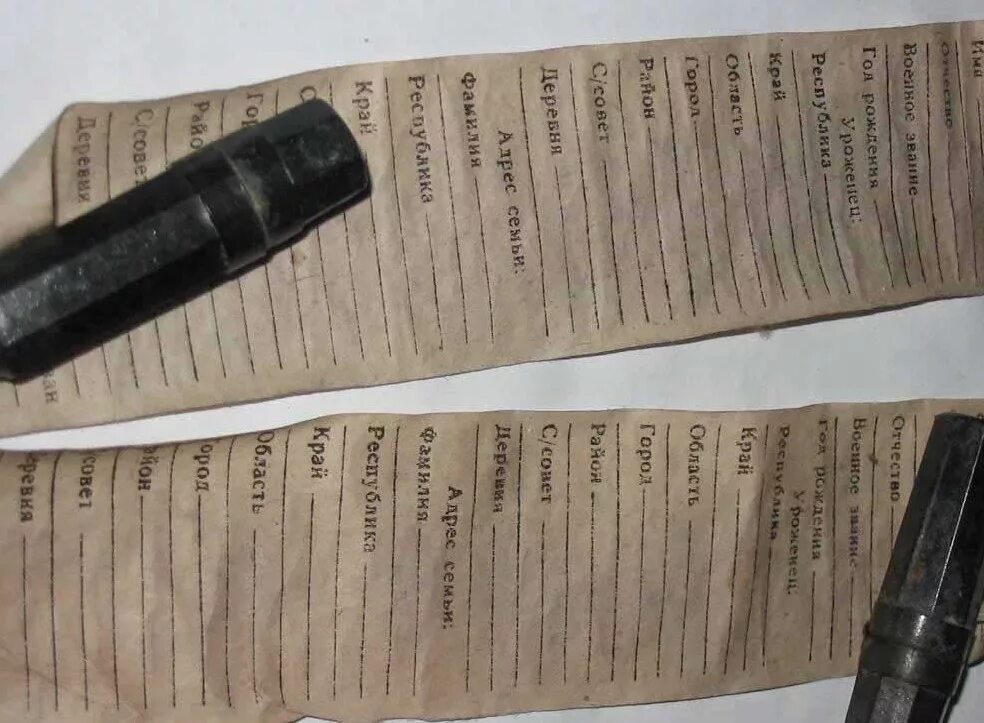 Имя
Отчество
Военное звание
Год рождения
Уроженец:
Республика
Край
Область
Город
Район
С/совет
Деревня
Адрес семьи:
Фамилия
Республика
Край
Деревни
Отчество
Военное звание
Год рождения
Уроженец:
Республика
Край
Область
Город
Район
С/совет
Деревня
Адрес семьи:
Фамилия
Республика
Край
Область
ород
айон
совет
ревня